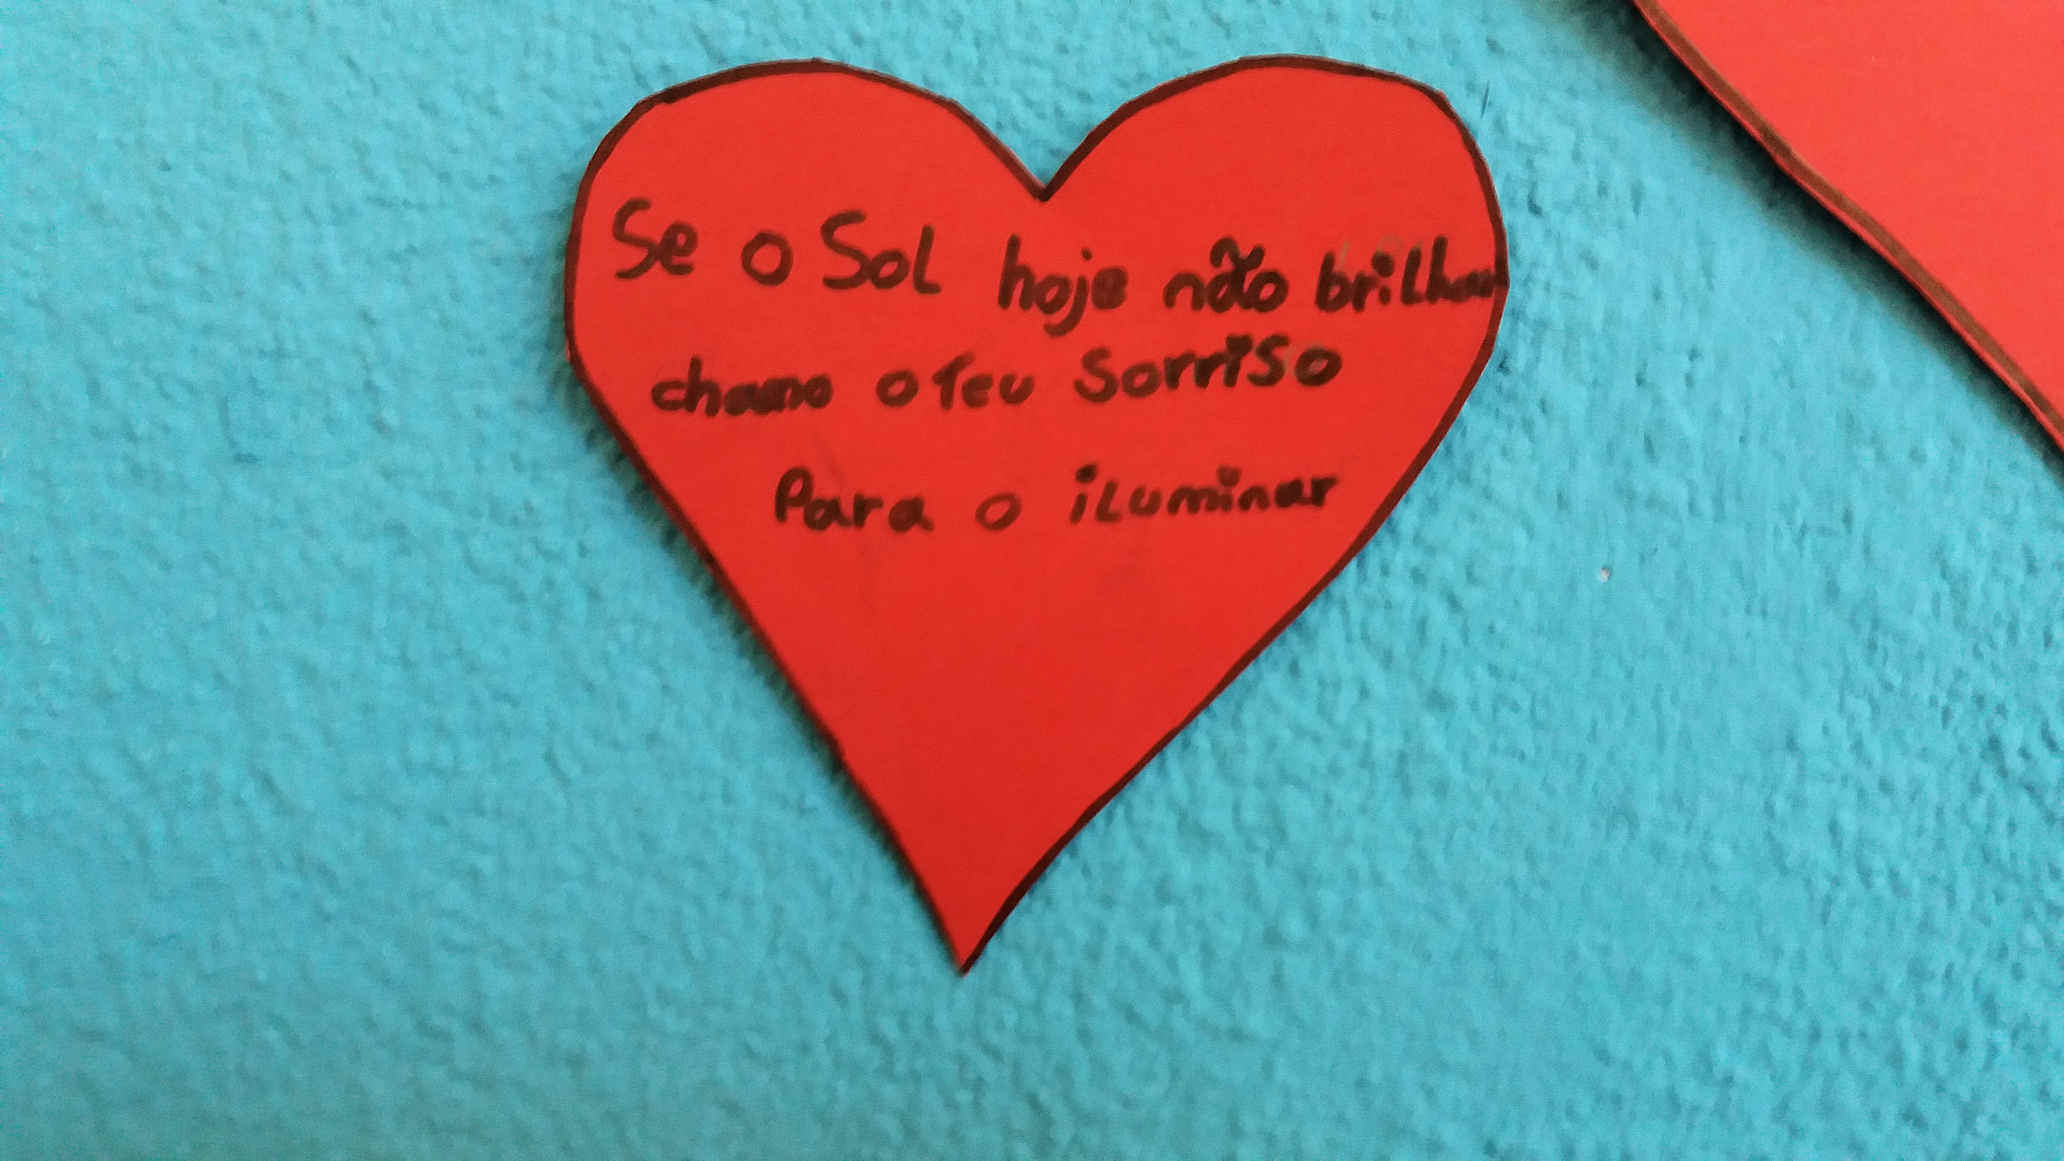 Se o Sol hoje não brilhar
chamo o Teu Sorriso
Para o iluminar